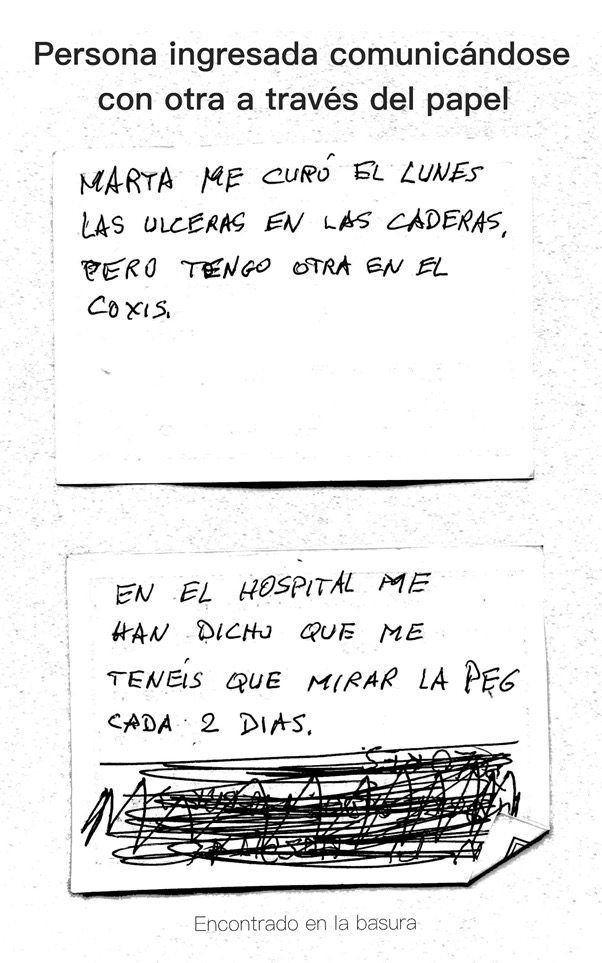 Persona ingresada comunicándose
con otra a través del papel
MARTA ME CURÓ EL LUNES
LAS ULCERAS EN LAS CADERAS,
PERO TENGO OTRA EN EL
COXIS.
EN EL HOSPITAL ME
HAN DICHO QUE ME
TENEÍS QUE MIRAR LA PEG
CADA 2 DIAS.
Encontrado en la basura